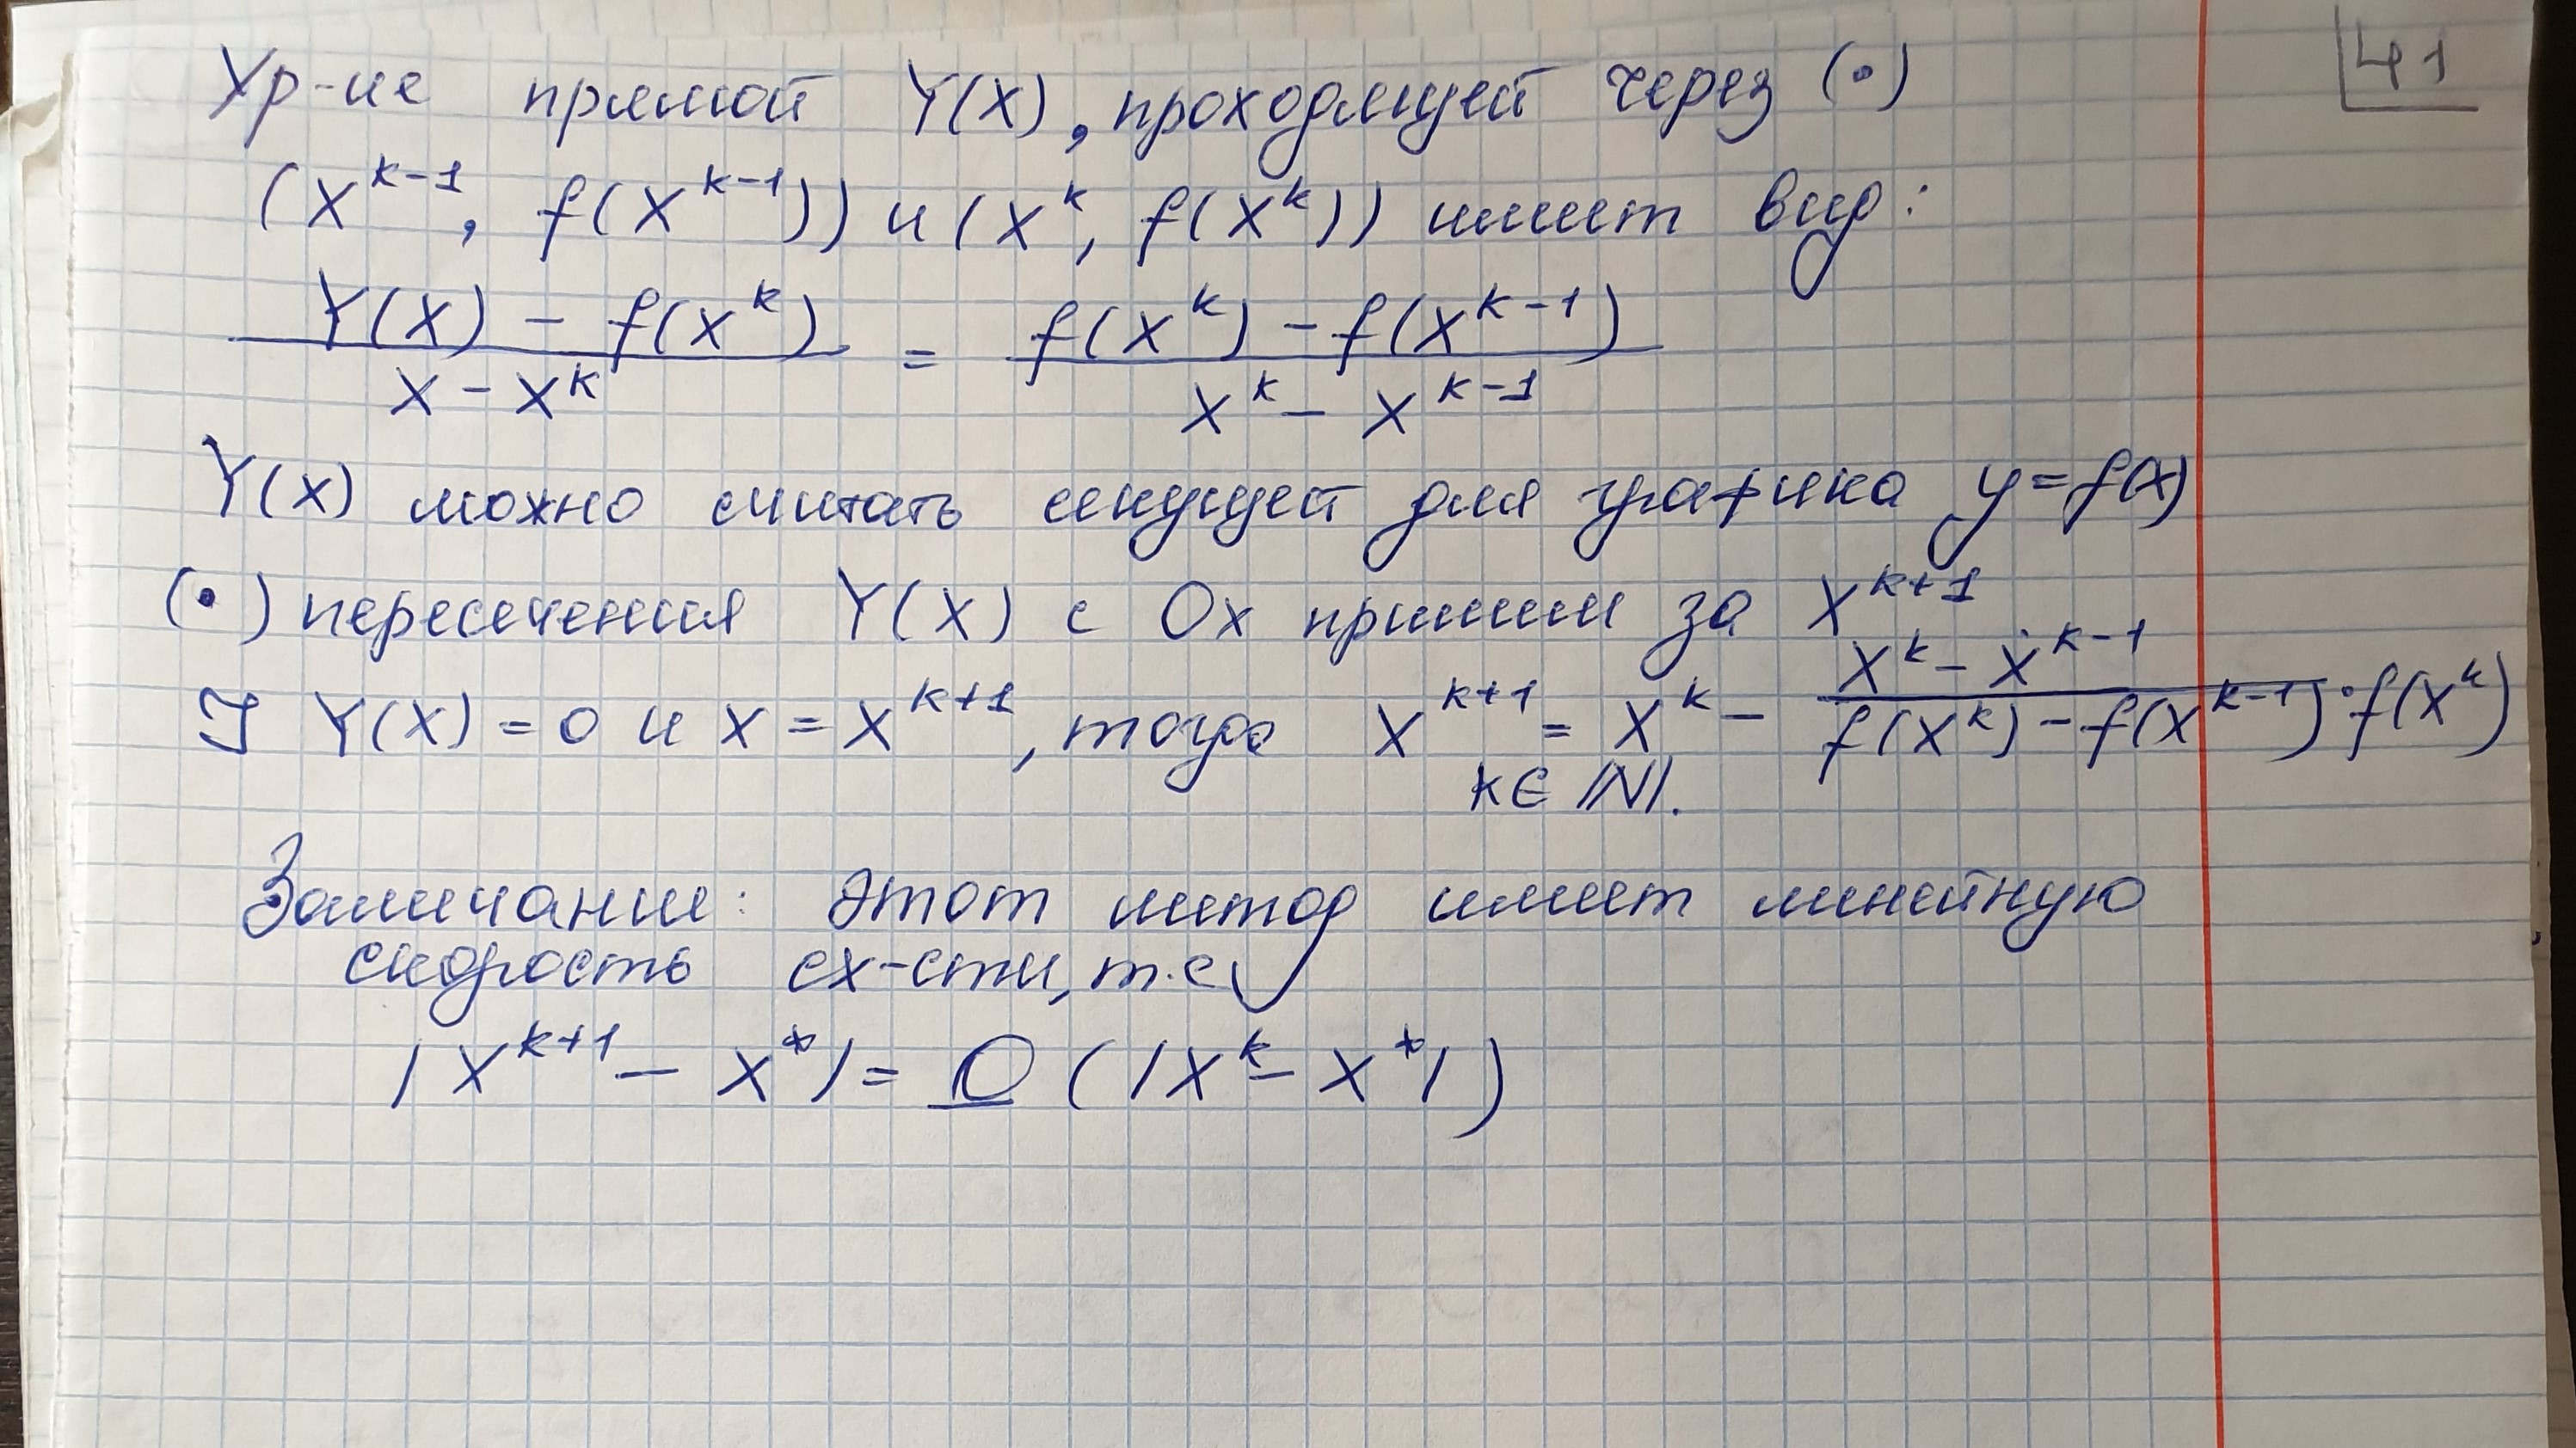 41
Ур-ие прямой Y(X), проходящей через (•)
(X^{k-1}, f(X^{k-1})) и (X^k, f(X^k)) имеет вид:
\frac{Y(X) - f(X^k)}{X - X^k} = \frac{f(X^k) - f(X^{k-1})}{X^k - X^{k-1}}
Y(X) можно считать секущей для графика y = f(x)
(•) пересечения Y(X) с Ox примем за X^{k+1}
] Y(X) = 0 и X = X^{k+1}, тогда X^{k+1} = X^k - \frac{X^k - X^{k-1}}{f(X^k) - f(X^{k-1})} · f(X^k)
k ∈ ℕ.
Замечание: этот метод имеет линейную
скорость сх-сти, т.е
|X^{k+1} - X^*| = \underline{O}(|X^k - X^*|)